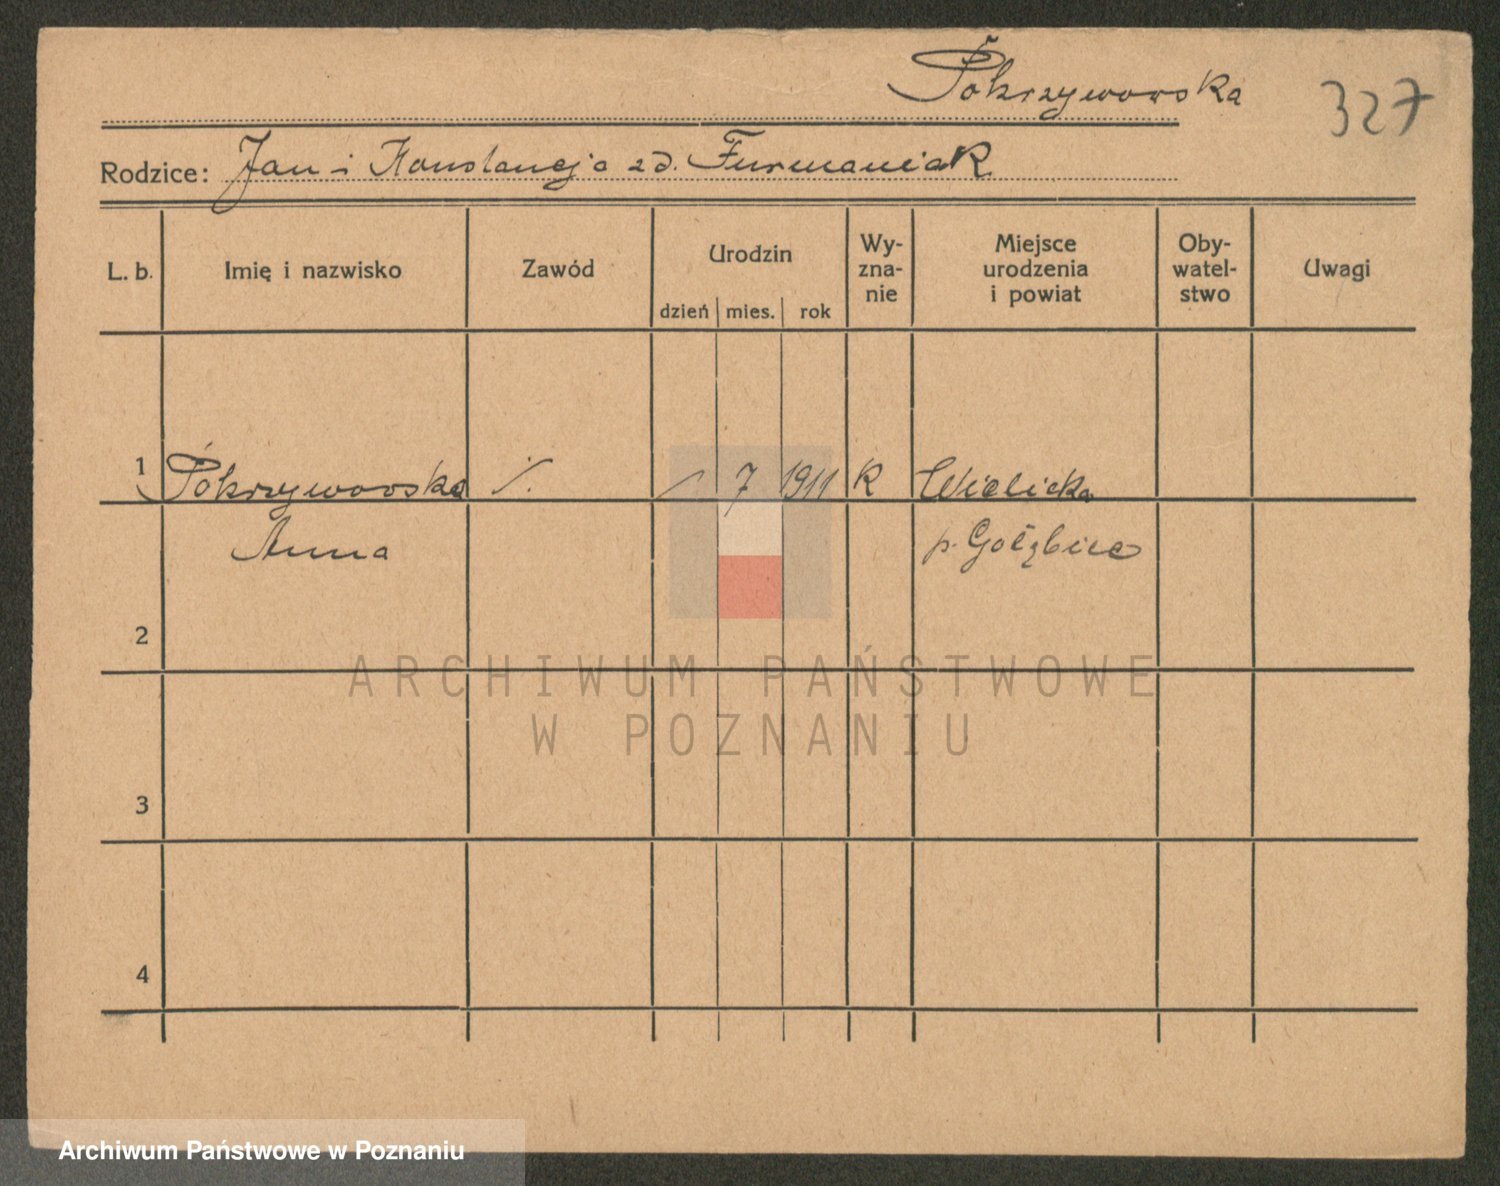 Pokrzywowska
327
Rodzice: Jan i Konstancja zd. Furmaniak
L. b. Imię i nazwisko Zawód Urodzin dzień mies. rok Wy-zna-nie Miejsce urodzenia i powiat Oby-watel-stwo Uwagi
1 Pokrzywowska ·/. / 7 1911 R Wielicka
Anna p. Gołębice
2
3
4
ARCHIWUM PAŃSTWOWE
W POZNANIU
Archiwum Państwowe w Poznaniu